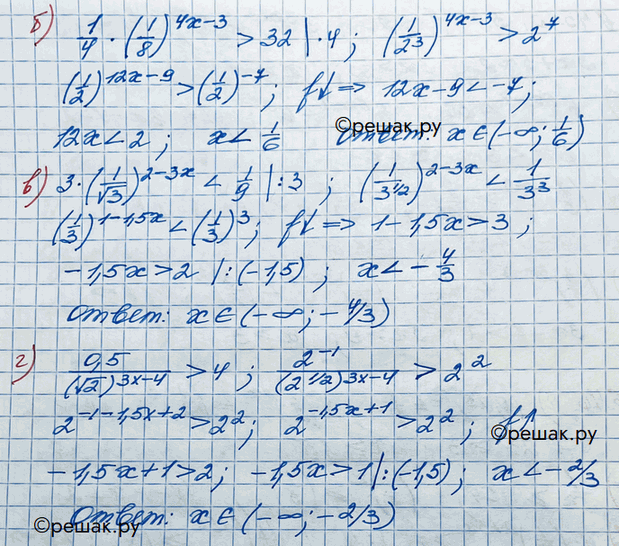 б) 1/4 · (1/8)^(4x-3) > 32 | · 4 ; (1/2^3)^(4x-3) > 2^7
(1/2)^(12x-9) > (1/2)^(-7) ; f↓ => 12x-9 < -7 ;
12x < 2 ; x < 1/6 Ответ: x ∈ (-∞; 1/6)
©решак.ру
в) 3 · (1/√3)^(2-3x) < 1/9 | : 3 ; (1/3^(1/2))^(2-3x) < 1/3^3
(1/3)^(1-1,5x) < (1/3)^3 ; f↓ => 1-1,5x > 3 ;
-1,5x > 2 | : (-1,5) ; x < -4/3
Ответ: x ∈ (-∞; -4/3)
г) 0,5/(√2)^(3x-4) > 4 ; 2^(-1)/(2^(1/2))^(3x-4) > 2^2
2^(-1-1,5x+2) > 2^2 ; 2^(-1,5x+1) > 2^2 ; f↑
©решак.ру
-1,5x+1 > 2 ; -1,5x > 1 | : (-1,5) ; x < -2/3
Ответ: x ∈ (-∞; -2/3)
©решак.ру